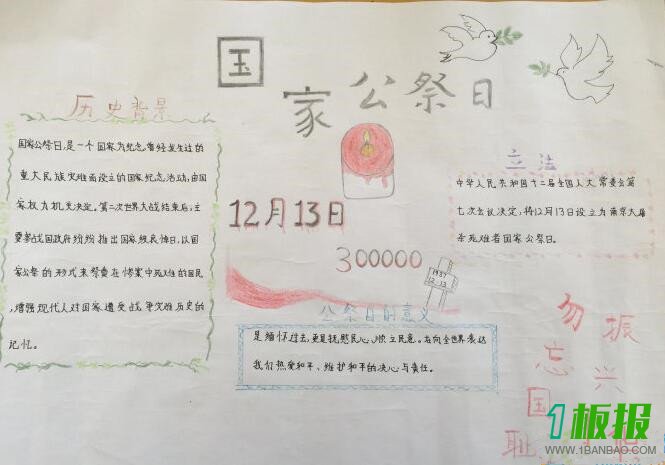 国家公祭日
历史背景
国家公祭日，是一个国家为纪念曾经发生过的
重大民族灾难而设立的国家纪念活动，由国
家权力机关决定。第二次世界大战结束后，主
要参战国政府纷纷推出国家级哀悼日，以国
家公祭的形式来祭奠在惨案中死难的国民
，增强现代人对国家遭受战争灾难历史的
记忆。
12月13日
300000
1937
12.13
立法
中华人民共和国十二届全国人大常委会第
七次会议决定，将12月13日设立为南京大屠
杀死难者国家公祭日。
公祭日的意义
是缅怀过去，更是抚慰民心、顺应民意。在向全世界表达
我们热爱和平、维护和平的决心与责任。
勿忘国耻
振兴
1板报
WWW.1BANBAO.COM